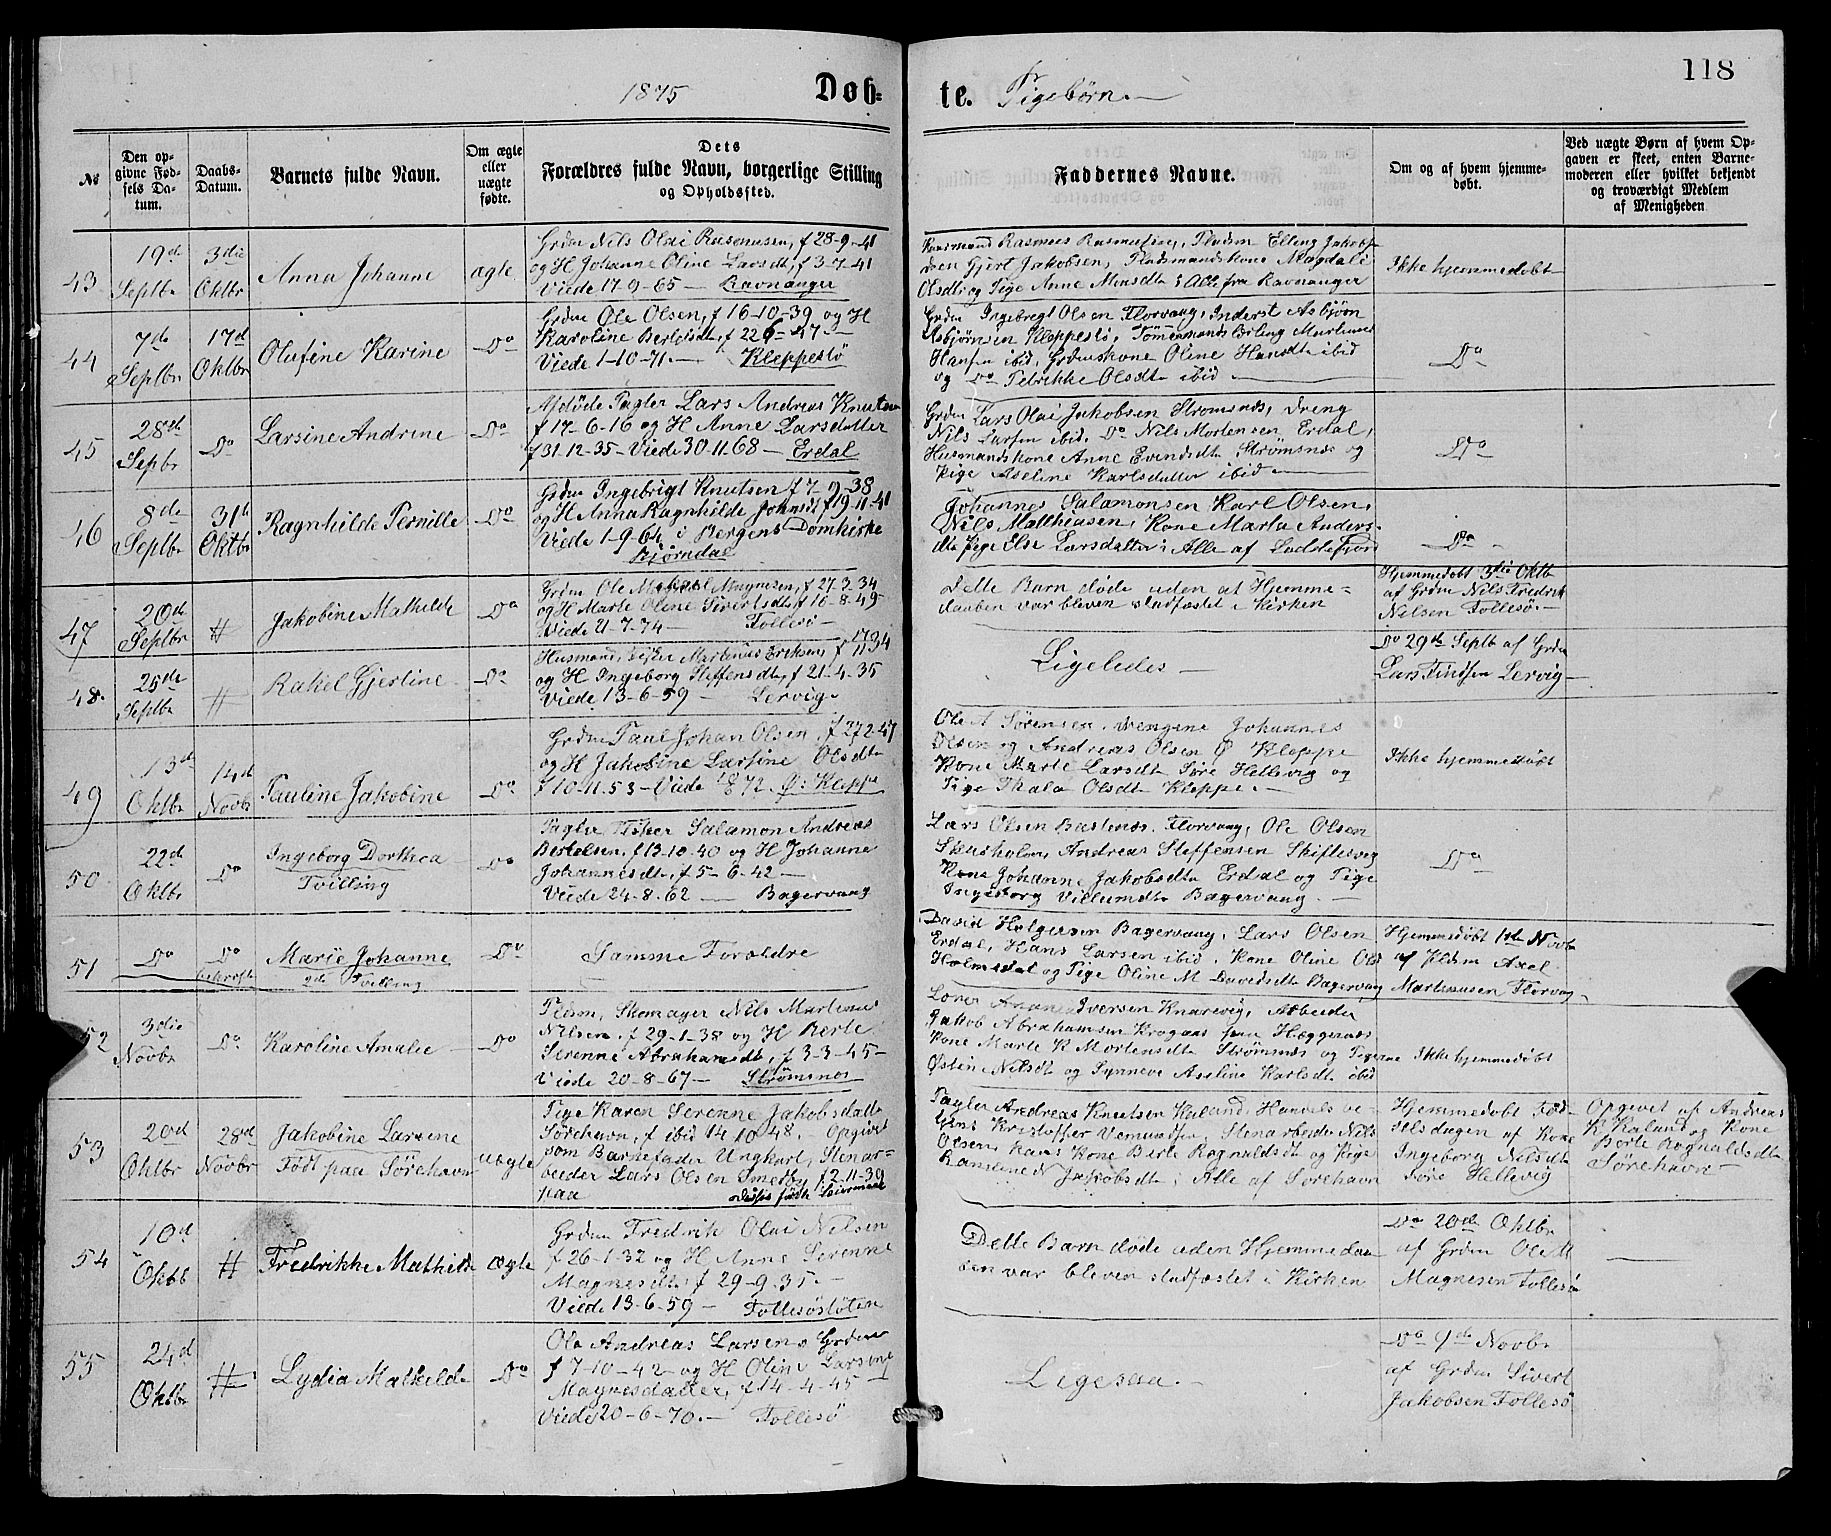 118
1875 Døb-
te. Pigebørn.
No
Den op-
givne Fød-
sels Da-
tum.
Daabs-
Datum.
Barnets fulde Navn.
Om ægte
eller
uægte
fødte.
Dets
Forældres fulde Navn, borgerlige Stilling
og Opholdssted.
Faddernes Navne.
Om og af hvem hjemme-
døbt.
Ved uægte Børn af hvem Op-
gaven er skeet, enten Barne-
moderen eller hvilket bekjendt
og troværdigt Medlem
af Menigheden
43
19de
Septbr
3die
Oktbr
Anna Johanne
ægte
Grdm Nils Olai Rasmussen, f 28-9-41
og H Johanne Oline Larsdt, f 3-7-41
Viede 17-9-65 - Ravnanger
Rasmus Rasmussen, Pladsm Elling Jakob-
sen Gjert Jakobsen, Pladsmandskone Magdali
Olsdt og Pige Anne Monsdt: Alle fra Ravnanger
Ikke hjemmedøbt
44
7de
Septbr
17d
Oktbr
Olufine Karine
Do
Grdm Ole Olsen, f 16-10-39 og H
Karoline Bertelsdt, f 22-6-47-
Viede 1-10-71. - Kleppestø
Grdm Ingebregt Olsen Florvaag, Inderst Asbjørn
Asbjørnsen Kleppestø, Tømermands Lærling Martinus
Hansen ibid, Grdmskone Oline Hansdt ibid
og Do Pedrikke Olsdt ibid
Do
45
28de
Sepbr
Do
Larsine Andrine
Do
Afdøde Pagter Lars Andreas Knutsen
f 17-6-16 og H Anne Larsdatter
f 31-12-35 - Viede 30-11-68 - Erdal
Grdm Lars Olai Jakobsen Strømsnæs, Dreng
Nils Larsen ibid. Do Nils Mortensen Erdal,
Husmandskone Anne Evendsdt Strømsnæs og
Pige Aseline Karlsdatter ibid
Do
46
8de
Septbr
31te
Oktbr
Ragnhilde Pernille
Do
Grdm Ingebrigt Knutsen f 7-9-38
og H Anna Ragnhilde Johnsdt f 19-11-41
Viede 1-9-64 i Bergens Domkirke
Bjørndal
Johannes Salamonsen Karl Olsen,
Nils Matthiasen, Kone Marta Anders-
dt, Pige Else Larsdatter; Alle af Ladde Fjord
Do
47
20d
Septbr
#
Jakobine Mathilde
Do
Grdm Ole Mikael Magnesen, f 27-2-34
og H Marte Oline Sivertsdt, f 16-8-49
Viede 21-7-74 - Follesø -
Dette Barn døde uden at Hjemme-
daaben var bleven stadfæstet i Kirken
Hjemmedøbt 3die Oktb
af Grdm Nils Fredrik
Nilsen Follesø. -
48
25de
Septbr
#
Rakel Gjertine
Do
Husmand, Fisker Martinus Eriksen, f 17/11 34
og H Ingeborg Steffensdt, f 21-4-35
Viede 13-6-59 - Lervig
Ligeledes -
Do 29de Septb af Grdm
Lars Findsen Lervig
49
13de
Oktbr
14de
Novbr
Pauline Jakobine
Do
Grdm Paul Johan Olsen, f 27 2-47
og H Jakobine Larsine Olsdt
f 10-11-53 - Viede 1872. Ø: Kleppe
Ole A Sørensen. Drengene Johannes
Olsen og Andreas Olsen Ø Kleppe
Kone Marte Larsdt Søre Hellevig og
Pige Thala Olsdt Kleppe. -
Ikke hjemmedøbt
50
22de
Oktbr
Do
Ingeborg Dorthea
Tvilling
Do
Pagter Fisker Salamon Andreas
Bertelsen, f 13-10-40 og H Johanne
Johannesdt, f 5-6-42 -
Viede 24-8-62 - Bagervaag
Lars Olsen Bastenæs. Florvaag, Ole Olsen
Skusholm, Andreas Steffensen Skiftesvig
Kone Johanne Jakobsdt Erdal og Pige
Ingeborg Villumdt Bagervaag. -
Do
51
Do
Do
bekræft
Marie Johanne
2de Tvilling
Do
Samme Forældre
David Helgesen Bagervaag, Lars Olsen
Erdal, Hans Larsen ibid. Kone Oline Olsd
Holmedal og Pige Oline M Davidsdt Bagervaag
Hjemmedøbt 1ste Novbr
af Pldsm Axel
Martinusen Florvaag
52
3die
Novbr
Do
Karoline Amalie
Do
Pldsm, Skomager Nils Martinus
Nilsen, f 29-1-38 og H Berte
Serenne Abrahamsdt, f 3-3-45-
Viede 20-8-67 - Strømsnes
Iversen Knarevig, Arbeider
Jakob Abrahamsen Krogaas paa Hæggernæs
Kone Marte K Mortensdt Strømsnæs og Pigerne
Østin Nilsdt og Synneve Aseline Karlsdt ibid
Ikke hjemmedøbt
53
20d
Oktbr
28d
Novbr
Jakobine Larsine
Født paa Sørehavn
uægte
Pige Karen Serenne Jakobsdatter
Sørehavn, f ibid 14 10 48. - Opgivet
som Barnefader Ungkarl, Stenar-
beider Lars Olsen f 2-11-39
paa
Pagter Andreas Knutsen Kaland, Handelsbe-
tjent Kristoffer Vemundsen, Stenarbeider Nils
Olsen, hans Kone Berte Ragnaldsdt og Pige
Jakobsdt, Alle af Sørehavn
Hjemmedøbt Fød-
selsdagen af Kone
Ingeborg Nilsdt
Søre Hellevig
Opgivet af Andreas
K Kaland og Kone
Berte Rognaldsdt
Sørehavn -
54
10d
Oktbr
#
Fredrikke Mathilde
ægte
Grdm Fredrik Olai Nilsen
f 26-1-32 og H Anne Serenne
Magnesdt, f 29-9-35. -
Viede 13-6-59 - Follesøsløten
Dette Barn døde uden Hjemmedaa-
ben var bleven stadfæstet i Kirken
Do 20de Oktbr
af Grdm Ole M
Magnesen Follesø
55
24d
Oktbr
#
Lydia Mathilde
Do
Ole Andreas Larsen, Grdm
f 7-10-42 og H Oline Larsine
Magnesdatter, f 14-4-45
Viede 20-6-70. - Follesø
Ligesaa. -
Do 9de Novbr
af Grdm Sivert
Jakobsen Follesø